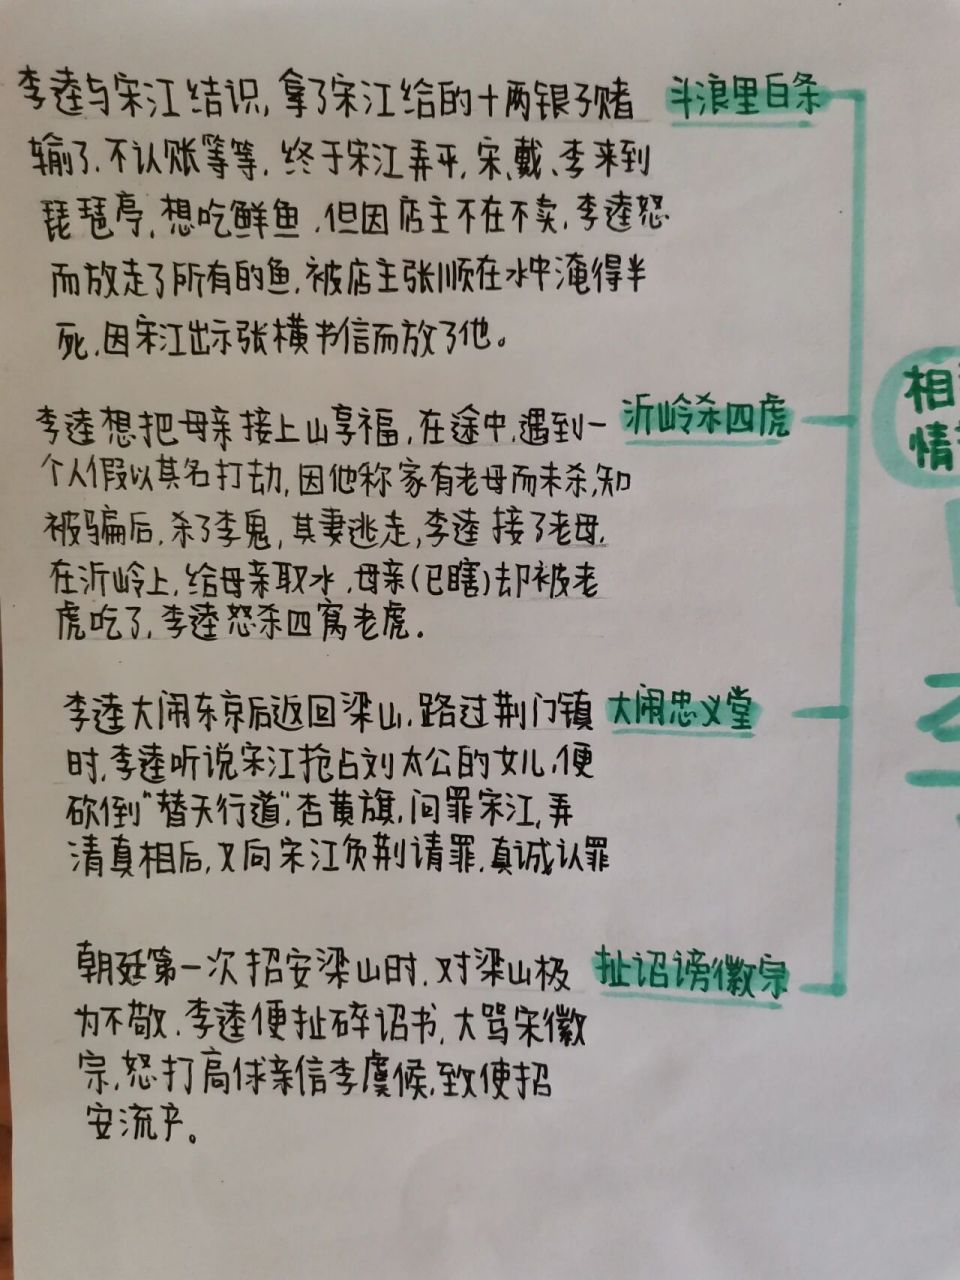 李逵与宋江结识,拿了宋江给的十两银子赌 斗浪里白条
输了.不认账等等.终于宋江弄平,宋、戴、李来到
琵琶亭,想吃鲜鱼,但因店主不在不卖.李逵怒
而放走了所有的鱼,被店主张顺在水中淹得半
死,因宋江出示张横书信而放了他。
李逵想把母亲接上山享福,在途中,遇到一 沂岭杀四虎
个人假以其名打劫,因他称家有老母而未杀,知
被骗后,杀了李鬼,其妻逃走,李逵接了老母,
在沂岭上,给母亲取水,母亲(已瞎)却被老
虎吃了,李逵怒杀四窝老虎.
李逵大闹东京后返回梁山.路过荆门镇 大闹忠义堂
时,李逵听说宋江抢占刘太公的女儿,便
砍倒“替天行道”,杏黄旗,问罪宋江,弄
清真相后,又向宋江负荆请罪.真诚认罪
朝廷第一次招安梁山时,对梁山极 扯诏谤徽宗
为不敬.李逵便扯碎诏书,大骂宋徽
宗,怒打高俅亲信李虞候,致使招
安流产。
相
情